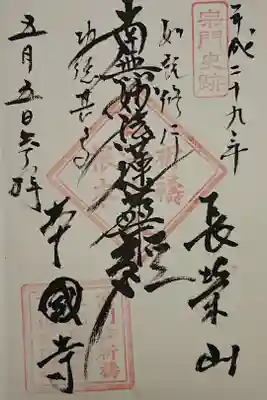 宗門史跡
平成二十九年
長栄山
如説修行
南無妙法蓮華経
功徳甚多
本國寺
五月五日参拝